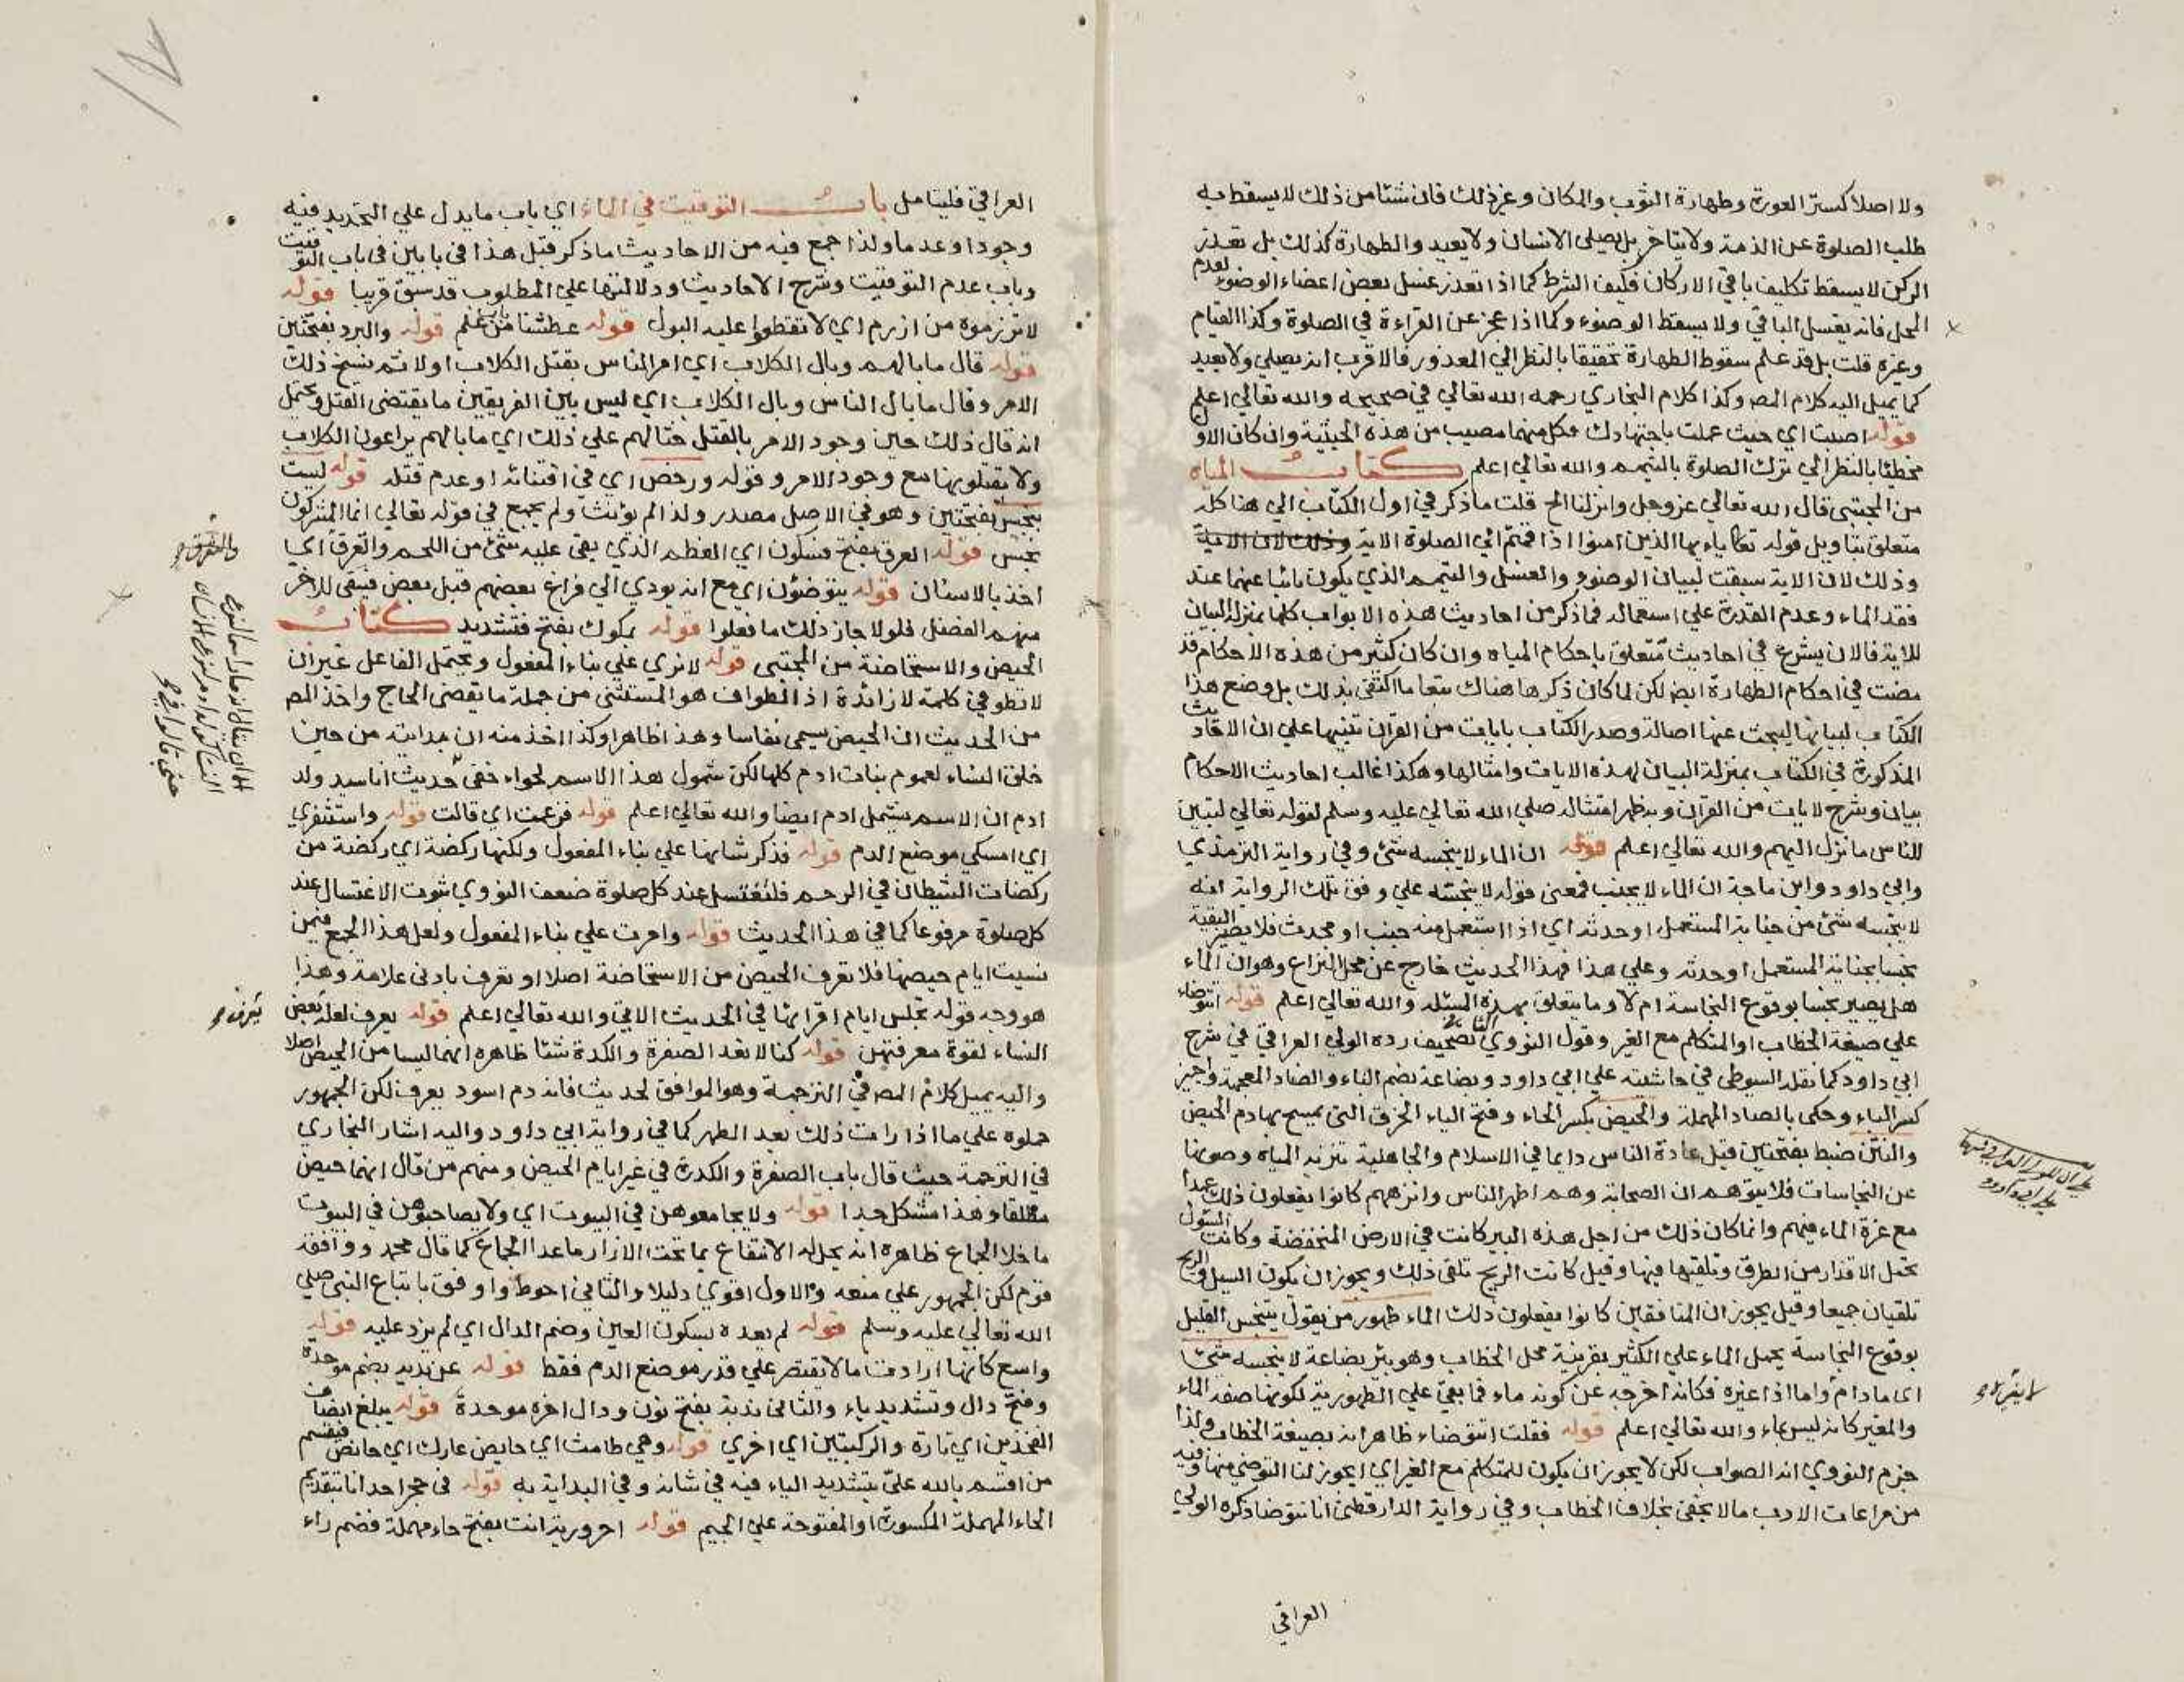 ولا اصلا كستر العورة وطهارة الثوب والمكان وغير ذلك فان شئا من ذلك لا يسقط به
طلب الصلوة عن الذمة ولا يتاخر بل يصلي الانسان ولا يعيد والطهارة كذلك بل تعذر
الركن لا يسقط تكليف باقي الاركان فكيف الشرط كما اذا تعذر غسل بعض اعضاء الوضوء لعدم
المحل فانه يغسل الباقي ولا يسقط الوضوء وكما اذا عجز عن القراءة في الصلوة وكذا القيام
وغيره قلت بل قد علم سقوط الطهارة تخفيفا بالنظر الي المعذور فالاقرب انه يصلي ولا يعيد
كما يميل اليه كلام المص وكذا كلام البخاري رحمه الله تعالي في صحيحه والله تعالي اعلم
قوله اصبت اي حيث عملت باجتهادك فكل منهما مصيب من هذه الحيثية وان كان الاول
مخطئا بالنظر الي ترك الصلوة بالتيمم والله تعالي اعلم كتاب المياه
من المجتبى قال الله تعالي عز وجل وانزلنا الخ قلت ما ذكر في اول الكتاب الي هنا كله
متعلق بتاويل قوله تعا ياءيها الذين امنوا اذا قمتم الي الصلوة الاية وذلك لان الاية
وذلك لان الاية سيقت لبيان الوضوء والغسل والتيمم الذي يكون نائبا عنهما عند
فقد الماء وعدم القدرة علي استعماله فما ذكر من احاديث هذه الابواب كلها بمنزلة البيان
للاية فالان يشرع في احاديث تتعلق باحكام المياه وان كان كثير من هذه الاحكام قد
مضت في احكام الطهارة ايض لكن لما كان ذكرها هناك تبعا ما اكتفى بذلك بل وضع هذا
الكتاب لبيانها ليبحث عنها اصالة وصدر الكتاب بايات من القران تنبيها علي ان الاحاديث
المذكورة في الكتاب بمنزلة البيان لهذه الايات وامثالها وهكذا غالب احاديث الاحكام
بيان وشرح لايات من القران وبه ظهر امتثاله صلي الله تعالي عليه وسلم لقوله تعالي لتبين
للناس ما نزل اليهم والله تعالي اعلم قوله ان الماء لا ينجسه شئ وفي رواية الترمذي
وابي داود وابن ماجة ان الماء لا يجنب فمعنى قوله لا ينجسه علي وفق تلك الرواية انه
لا ينجسه شئ من جنابة المستعمل او حدثه اي اذا استعمل منه جنب او محدث فلا يصير البقية
نجسا بجنابة المستعمل او حدثه وعلي هذا فهذا الحديث خارج عن محل النزاع وهو ان الماء
هل يصير نجسا بوقوع النجاسة ام لا وما يتعلق بهذه المسئلة والله تعالي اعلم قوله اتتوضاء
علي صيغة الخطاب او المتكلم مع الغير وقول النووي الثاني تصحيف رده الولي العراقي في شرح
ابي داود كما نقله السيوطي في حاشيته علي ابي داود وبضاعة بضم الباء والضاد المعجمة واجيز
كسر الباء وحكى بالصاد المهملة والحيض بكسر الحاء وفتح الياء الخرق التي يمسح بها دم الحيض
والنتن ضبط بفتحتين قيل عادة الناس دايما في الاسلام والجاهلية تنزيه المياه وصونها
عن النجاسات فلا يتوهم ان الصحابة وهم اطهر الناس وانزههم كانوا يفعلون ذلك عمدا
مع عزة الماء فيهم وانما كان ذلك من اجل هذه البير كانت في الارض المنخفضة وكانت السيول
تحمل الاقذار من الطرق وتلقيها فيها وقيل كانت الريح تلقي ذلك ويجوز ان يكون السيل والريح
تلقيان جميعا وقيل يجوز ان المنافقين كانوا يفعلون ذلك الماء طهور من يقول بتنجس القليل
بوقوع النجاسة يحمل الماء علي الكثير بقرينة محل الخطاب وهو بئر بضاعة لا ينجسه شئ
اى ما دام واما اذا غيره فكانه اخرجه عن كونه ماء فما بقي علي الطهورية لكونها صفة الماء
والمغير كانه ليس بماء والله تعالي اعلم قوله فقلت اتتوضاء ظاهر انه بصيغة الخطاب ولذا
جزم النووي انه الصواب لكن لا يجوز ان يكون للمتكلم مع الغير اي ايجوز لنا التوضي منها وفيه
من مراعات الادب ما لا يخفى بخلاف الخطاب وفي رواية الدارقطني انا نتوضا ذكره الولي
العراقي
العراقي فليتامل باب التوقيت في الماء اي باب ما يدل علي التحديد فيه
وجودا وعدما ولذا جمع فيه من الاحاديث ما ذكر قبل هذا في بابين في باب التوقيت
وباب عدم التوقيت وشرح الاحاديث ودلالتها علي المطلوب قد سبق قريبا قوله
لا تزرموه من ازرم اي لا تقطعوا عليه البول قوله عطشنا قوله والبرد بفتحتين
قوله قال ما بالهم وبال الكلاب اي امر الناس بقتل الكلاب اولا ثم نسخ ذلك
الامر وقال ما بال الناس وبال الكلاب اي ليس بين الفريقين ما يقتضي القتل ويحتمل
انه قال ذلك حين وجود الامر بالقتل حثا لهم علي ذلك اي ما بالهم يراعون الكلاب
ولا يقتلونها مع وجود الامر وقوله ورخص اي في اقتنائه او عدم قتله قوله ليست
بنجس بفتحتين وهو في الاصل مصدر ولذا لم يؤنث ولم يجمع في قوله تعالي انما المشركون
نجس قوله العرق بفتح فسكون اي العظم الذي بقي عليه شئ من اللحم واتعرق اي
اخذ بالاسنان قوله يتوضئون اي مع انه يودي الي فراغ بعضهم قبل بعض فيبقى للاخر
منهم الفضل فلولا جاز ذلك ما فعلوا قوله بمكوك بفتح فتشديد كتاب
الحيض والاستحاضة من المجتبى قوله لا نري علي بناء المفعول ويحتمل الفاعل غير ان
لا تطوفي كلمة لا زائدة اذ الطواف هو المستثنى من جملة ما يقضي الحاج واخذ المص
من الحديث ان الحيض يسمى نفاسا وهذا ظاهر وكذا اخذ منه ان بدايته من حين
خلق النساء لعموم بنات ادم كلها لكن شمول هذا الاسم لحواء خفي كحديث انا سيد ولد
ادم ان الاسم يشمل ادم ايضا والله تعالي اعلم قوله فزعمت اي قالت قوله واستثفري
اي امسكي موضع الدم قوله فذكر شانها علي بناء المفعول ولكنها ركضة اي ركضة من
ركضات الشيطان في الرحم فلتغتسل عند كل صلوة ضعف النووي ثبوت الاغتسال عند
كل صلوة مرفوعا كما في هذا الحديث قوله وامرت علي بناء المفعول ولعل هذا الجمع فيمن
نسيت ايام حيضها فلا تعرف الحيض من الاستحاضة اصلا او تعرف بادنى علامة وهذا
هو وجه قوله تجلس ايام اقرائها في الحديث الاتي والله تعالي اعلم قوله يعرف لعله بعض
النساء لقوة معرفتهن قوله كنا لا نعد الصفرة والكدرة شئا ظاهره انهما ليسا من الحيض اصلا
واليه يميل كلام المص في الترجمة وهو الموافق لحديث فانه دم اسود يعرف لكن الجمهور
حملوه علي ما اذا رات ذلك بعد الطهر كما في رواية ابي داود واليه اشار البخاري
في الترجمة حيث قال باب الصفرة والكدرة في غير ايام الحيض ومنهم من قال انهما حيض
مطلقا وهذا مشكل جدا قوله ولا يجامعوهن في البيوت اي ولا يصاحبوهن في البيوت
ما خلا الجماع ظاهره انه يحل له الانتفاع بما تحت الازار ما عدا الجماع كما قال محمد ووافقه
قوم لكن الجمهور علي منعه والاول اقوي دليلا والثاني احوط واوفق باتباع النبي صلي
الله تعالي عليه وسلم قوله لم يعده بسكون العين وضم الدال اي لم يزد عليه قوله
واسع كانها ارادت ما لا يقتصر علي قدر موضع الدم فقط قوله عن بدية بضم موحدة
وفتح دال وتشديد ياء والثاني ندبة بفتح نون ودال اخره موحدة قوله يبلغ انصاف
الفخذين اي تارة والركبتين اي اخري قوله وهي طامث اي حايض عارك اي حائض فيقسم
من اقسم بالله علي بتشديد الياء فيه في شانه وفي البداية به قوله في حجر احدانا بتقديم
الحاء المهملة المكسورة او المفتوحة علي الجيم قوله احرورية انت بفتح حاء مهملة فضم راء